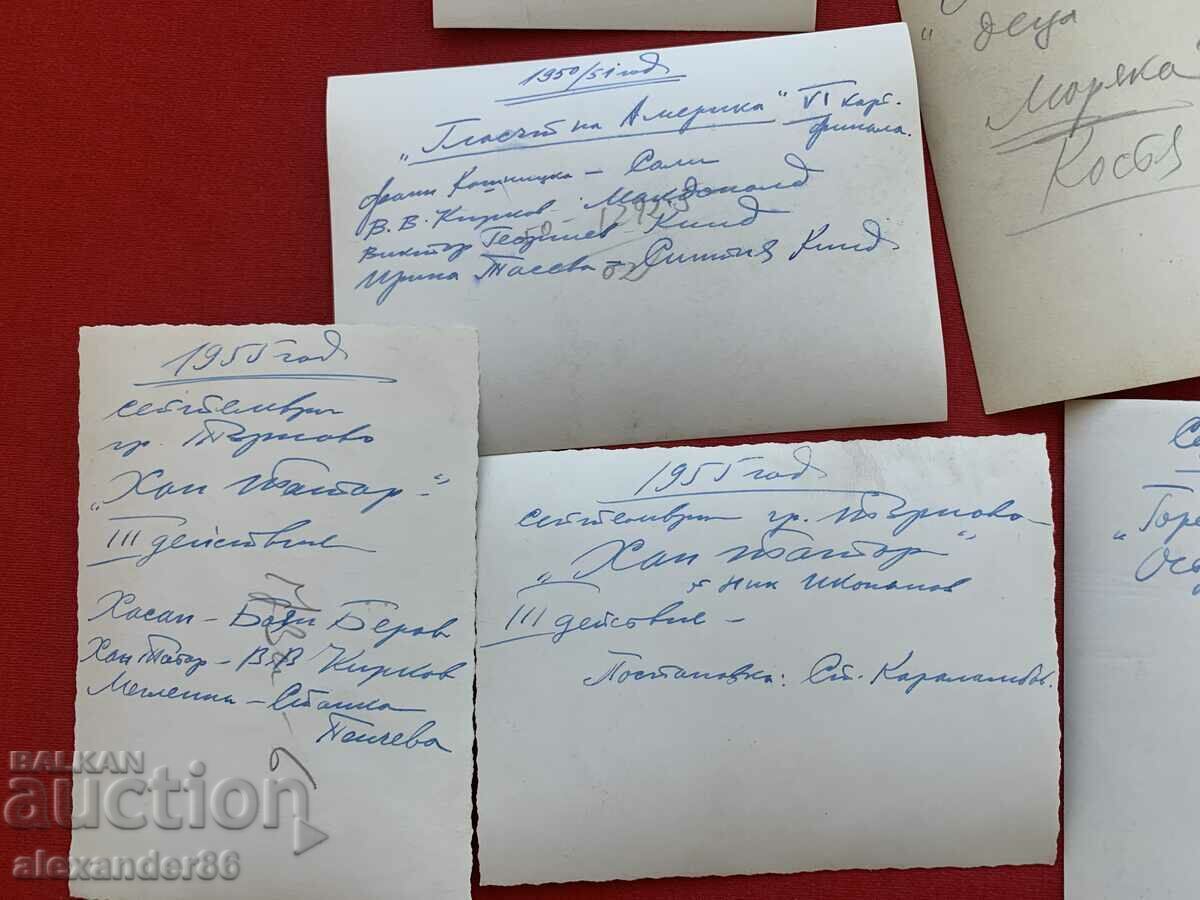 1950/51 год
„Гласът на Америка" VI карт.
финала.
Фани Кошницка – Сали
В. В. Кирков – Макдоналд
Виктор Георгиев – Кинд
Ирина Тасева – Синтия Кинд
деца
Моряка"
Костя
1955 год
септември
гр. Търново
„Хан Татар"
III действие
Хасан – Беров
Хан Татар – В. В. Кирков
Меглена – Станка
Пенчева
1955 год
септември гр. Търново
„Хан Татар"
от Ник Икономов
III действие –
Постановка: Ст. Караламбов.
„Горе
BALKAN
auction
alexander86